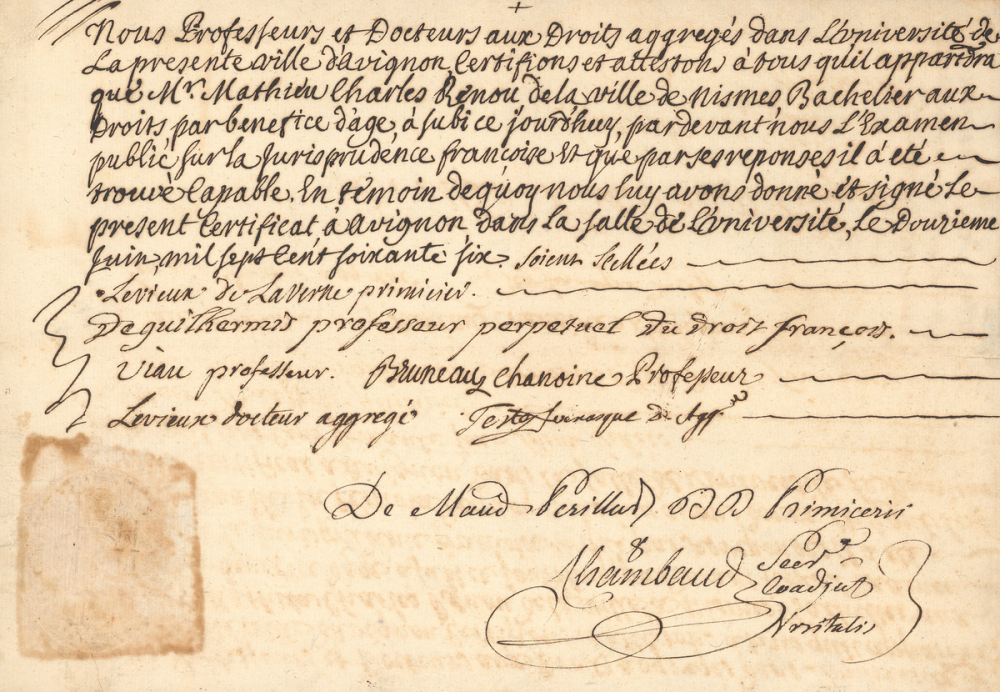 Nous Professeurs et Docteurs aux Droits aggregés dans L'université de
La presente ville d'avignon, Certifions et attestons à tous qu'il appartdra
que Mr. Mathieu Charles Renou de la ville de Nismes, Bachelier aux
Droits par benefice d'age, à subi ce jourdhuy, pardevant nous L'Examen
public sur la Jurisprudence françoise Et que par ses reponses il à eté
trouvè Capable. En témoin dequoy nous luy avons donné et signé Le
present Certificat à avignon dans La salle de L'université, Le Douzieme
Juin, mil sept Cent soixante six. soient scellées
Levieux de Laverne primicier.
De guilhermis professeur perpetuel Du droit françois.
Viau professeur. Bruneau Chanoine Professeur
Levieux docteur aggregé Teste Dr Aggé
De Maud Primicerii
Chambaud Secr
Coadjut
Vrsitatis